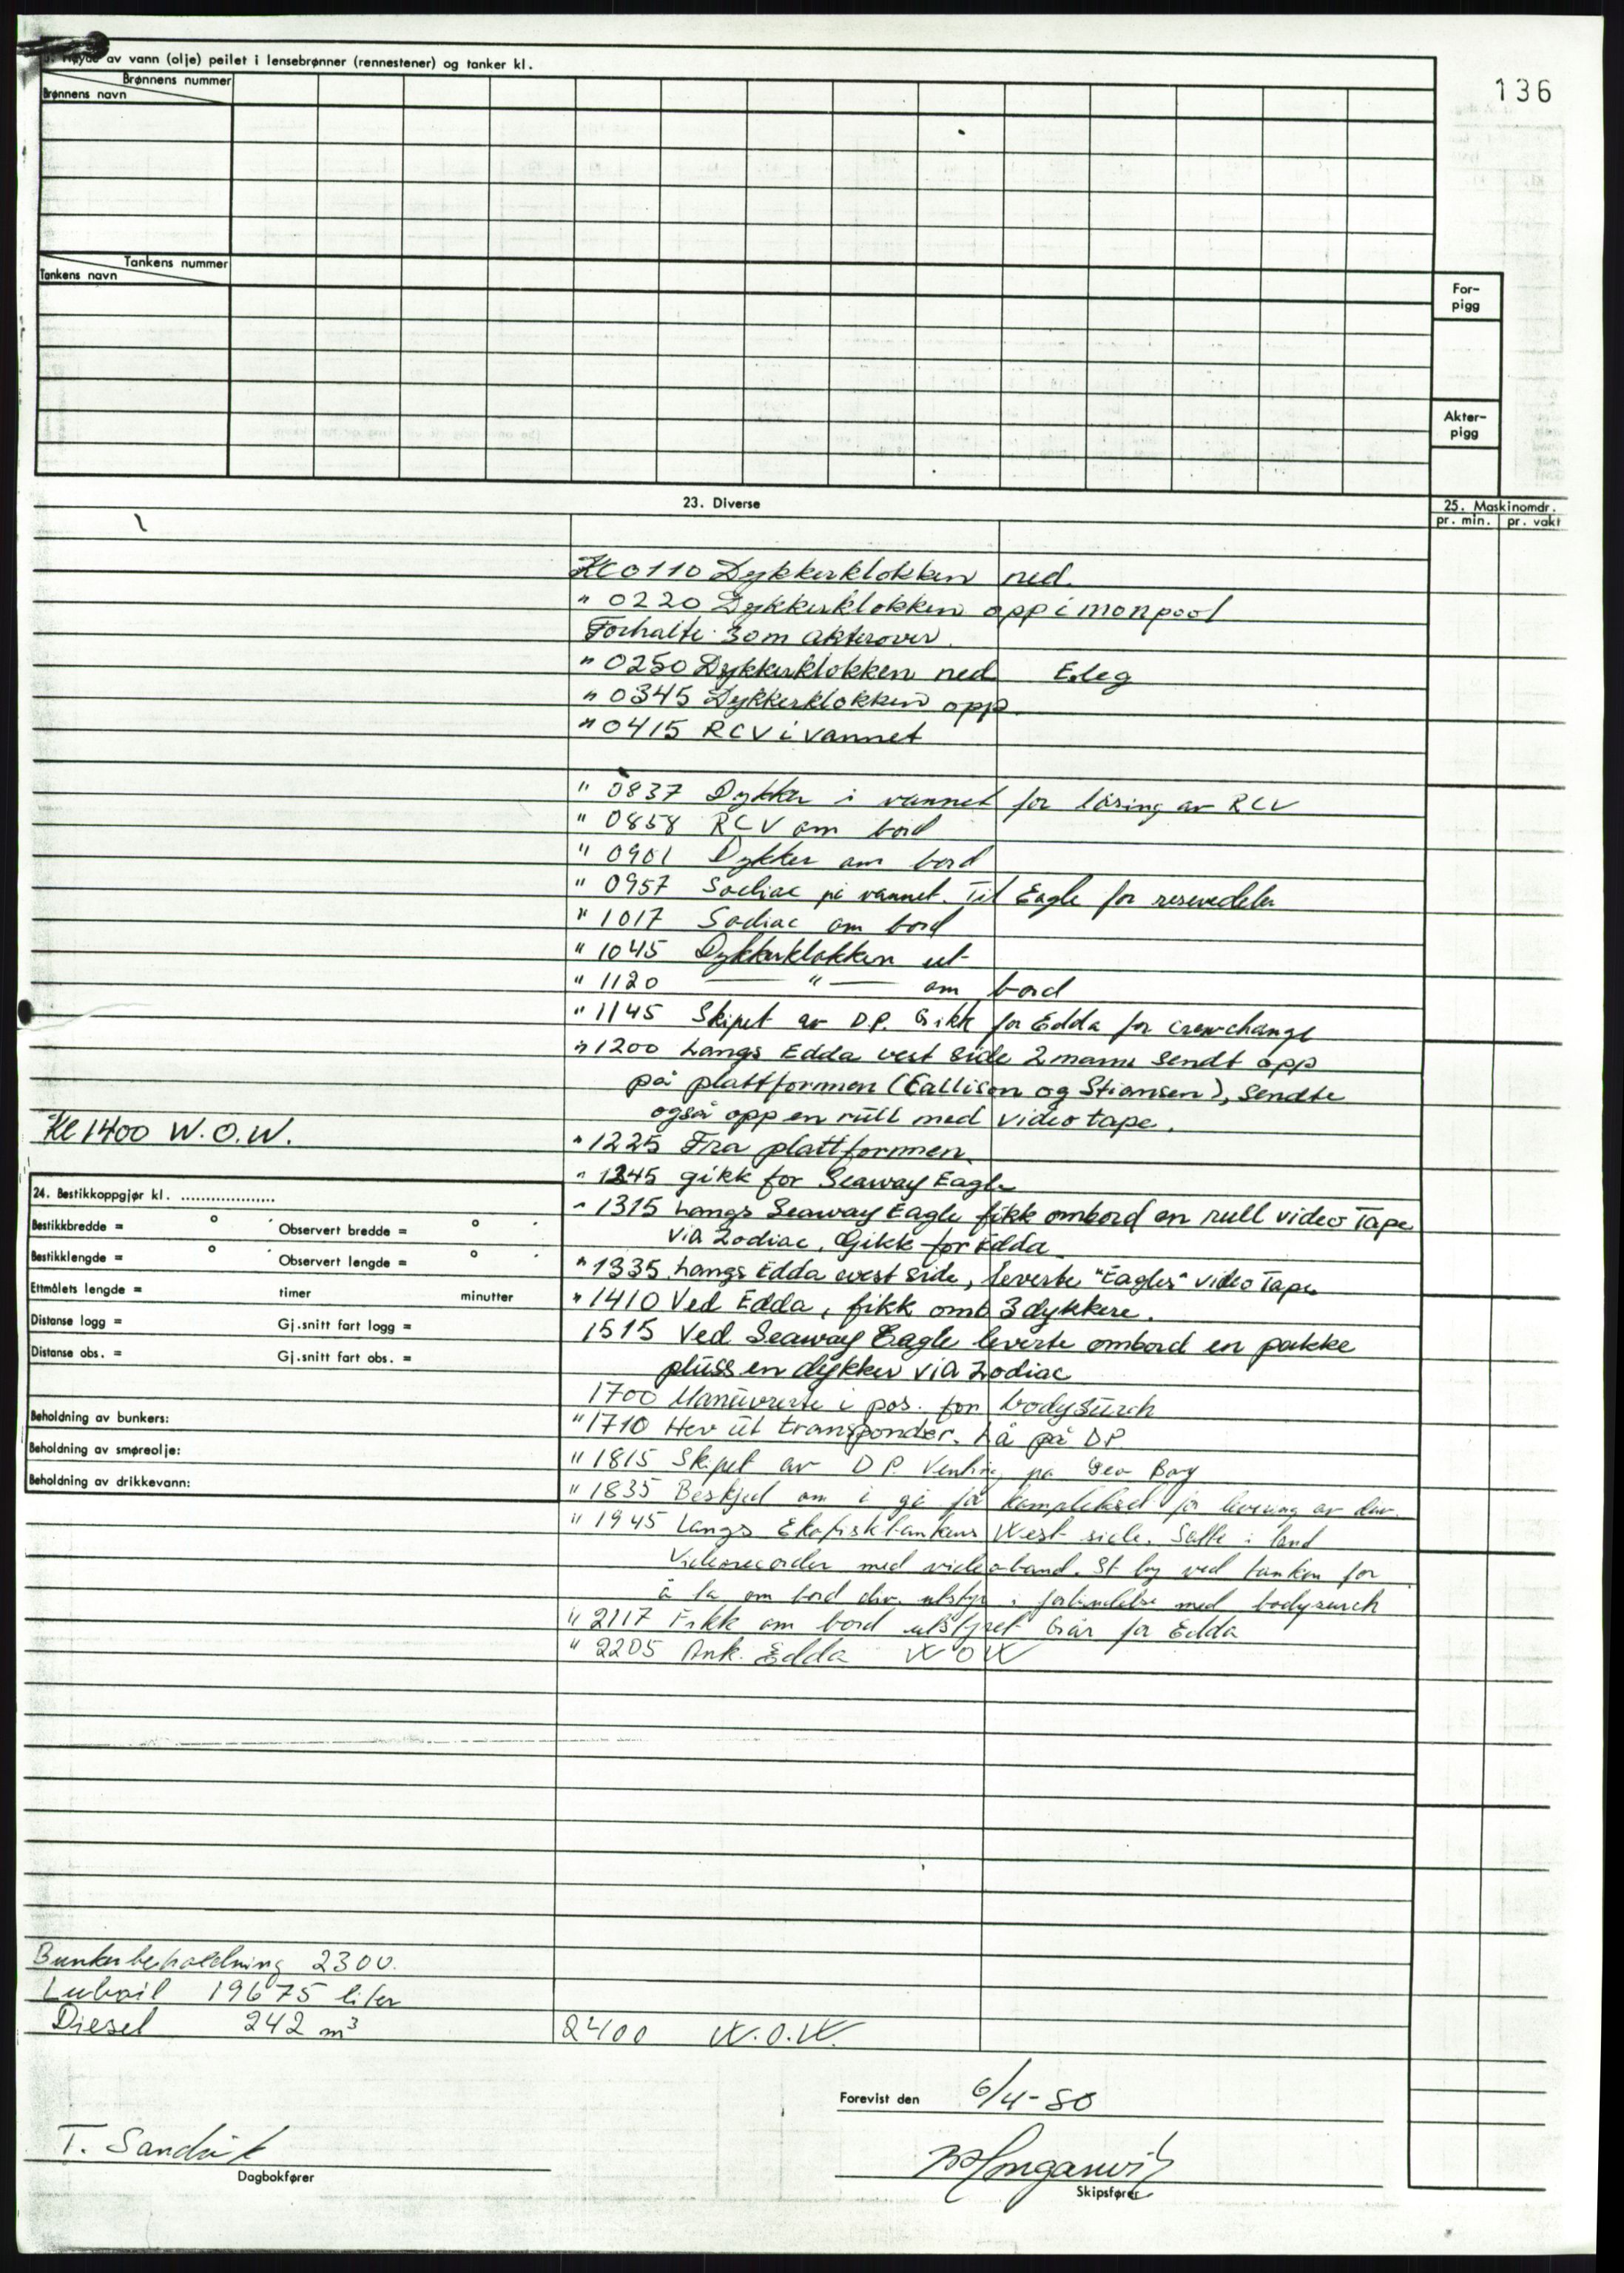 136
av vann (olje) peilet i lensebrønner (rennestener) og tanker kl.
Brønnens nummer
Brønnens navn
Tankens nummer
Tankens navn
For-
pigg
Akter-
pigg
23. Diverse
25. Maskinomdr.
pr. min. pr. vakt
Kl 0110 Dykkerklokken ned.
" 0220 Dykkerklokken opp i monpool
Forhalte 30m akterover.
" 0250 Dykkerklokken ned
" 0345 Dykkerklokken opp
" 0415 RCV i vannet
" 0837 Dykker i vannet for låsing av RCV
" 0858 RCV om bord
" 0901 Dykker om bord
" 0957 Sodiac på vannet. Til Eagle for reservedeler
" 1017 Sodiac om bord
" 1045 Dykkerklokken ut
" 1120 — " — om bord
" 1145 Skipet av D.P. Gikk for Edda for crewchange
" 1200 Langs Edda vest side 2 mann sendt opp
på plattformen (Eallison og Stiansen), sendte
også opp en rull med video tape.
Kl 1400 W.O.W.
" 1225 Fra plattformen
" 1245 gikk for Seaway Eagle
" 1315 Langs Seaway Eagle fikk ombord en rull video Tape
via Zodiac, Gikk for Edda
" 1335 Langs Edda west side, leverte "Eagles" video Tape
" 1410 Ved Edda, fikk omb 3 dykkere.
1515 Ved Seaway Eagle leverte ombord en pakke
pluss en dykker via Zodiac
1700 Manøvrerte i pos. for bodysürch
" 1710 Hev ut transponder. Lå på DP.
" 1815 Skipet av D.P. Venting på Geo Boy
" 1835 Beskjed om å gå for komplekset for levering av div.
" 1945 Langs Ekofisktankens West side. Satte i land
Videorecorder med videoband. St by ved tanken for
å ta om bord div. utstyr i forbindelse med bodysurch
" 2117 Fikk om bord utstyret Går for Edda
" 2205 Ank. Edda WOW
24. Bestikkoppgjør kl. ...................
Bestikkbredde = o ' Observert bredde = o '
Bestikklengde = o ' Observert lengde = o '
Ettmålets lengde = timer minutter
Distanse logg = Gj.snitt fart logg =
Distanse obs. = Gj.snitt fart obs. =
Beholdning av bunkers:
Beholdning av smøreolje:
Beholdning av drikkevann:
Bunkerbeholdning 2300.
Luboil 19675 liter
Diesel 242 m³
2400 W.O.W.
Forevist den 6/4-80
T. Sandvik
Dagbokfører
Skipsfører